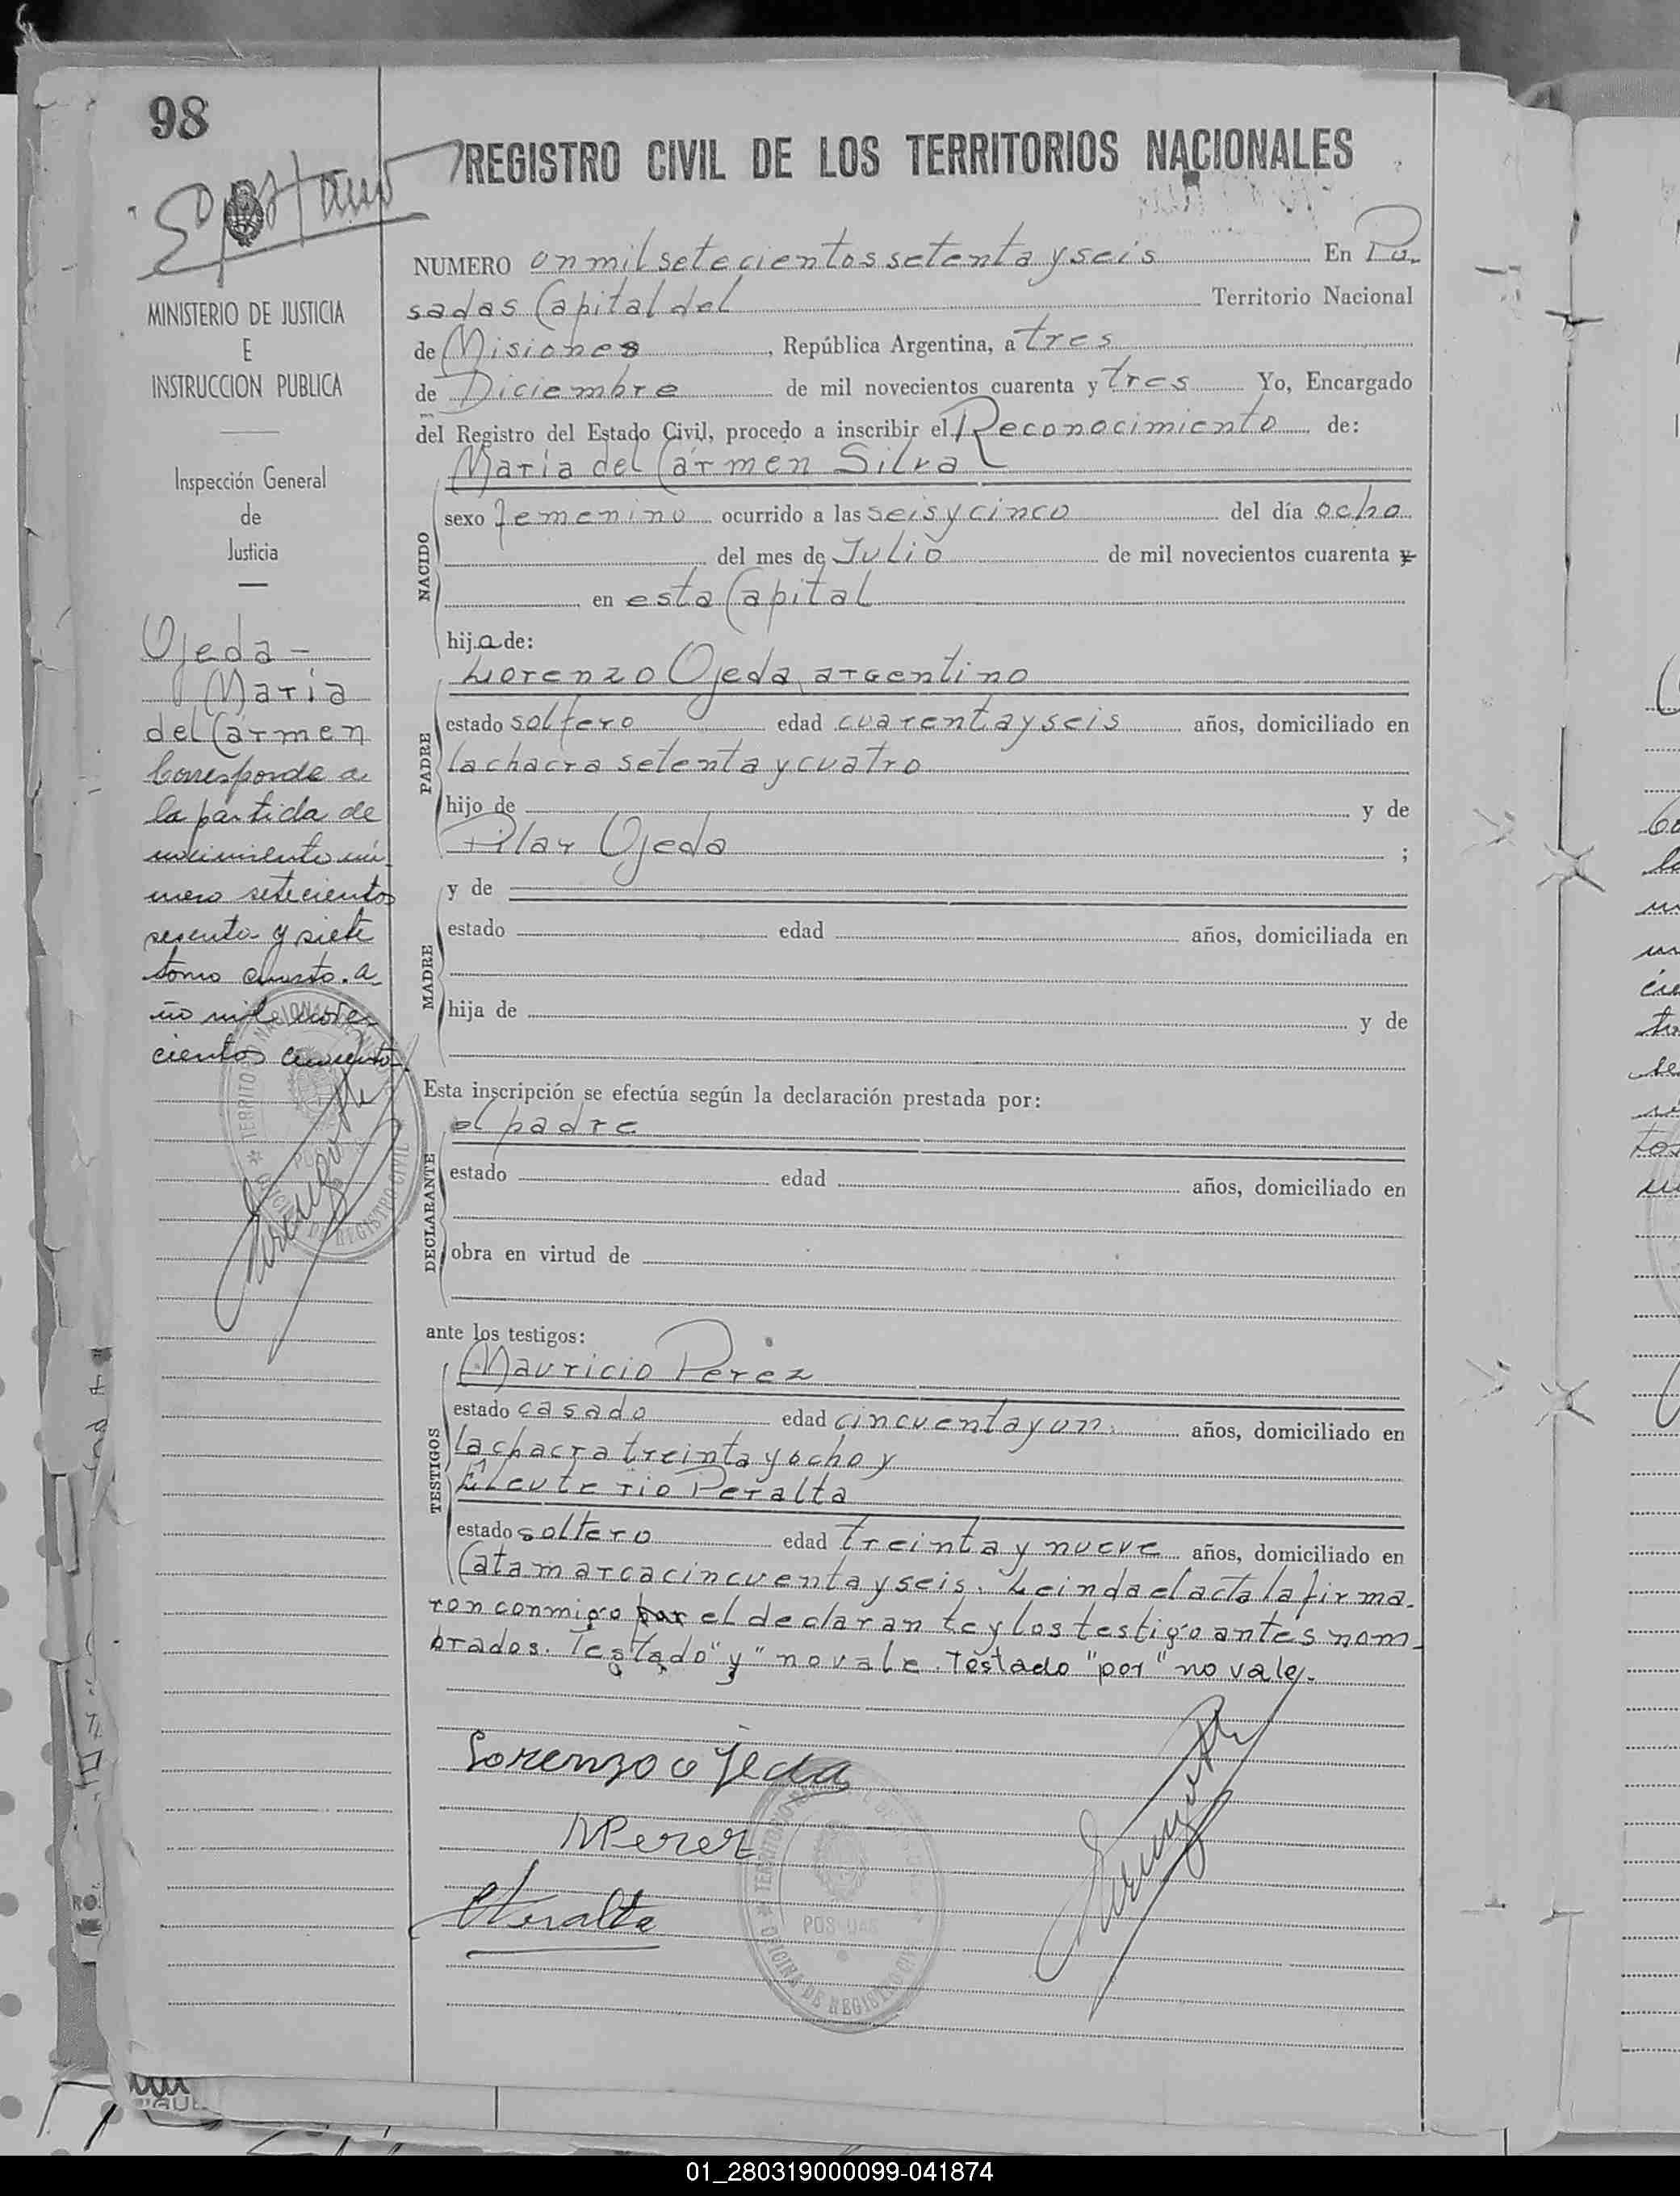 98
REGISTRO CIVIL DE LOS TERRITORIOS NACIONALES
MINISTERIO DE JUSTICIA
E
INSTRUCCION PUBLICA
Inspección General
de
Justicia
Ojeda -
Maria
del Carmen
Corresponde a
la partida de
nacimiento nú-
mero setecientos
sesenta y siete
tomo cuarto. a-
ño mil nove-
cientos cuarenta.
NUMERO un mil setecientos setenta y seis En Po-
sadas Capital del Territorio Nacional
de Misiones, República Argentina, a tres
de Diciembre de mil novecientos cuarenta y tres Yo, Encargado
del Registro del Estado Civil, procedo a inscribir el Reconocimiento de:
Maria del Carmen Silva
NACIDO
sexo femenino ocurrido a las seis y cinco del día ocho
del mes de Julio de mil novecientos cuarenta y
en esta Capital
hija de:
Lorenzo Ojeda argentino
PADRE
estado soltero edad cuarenta y seis años, domiciliado en
la chacra setenta y cuatro
hijo de y de
Pilar Ojeda ;
y de
MADRE
estado edad años, domiciliada en
hija de y de
Esta inscripción se efectúa según la declaración prestada por:
el padre
DECLARANTE
estado edad años, domiciliado en
obra en virtud de
ante los testigos:
Mauricio Perez
TESTIGOS
estado casado edad cincuenta y un. años, domiciliado en
la chacra treinta y ocho y
Eleuterio Peralta
estado soltero edad treinta y nueve años, domiciliado en
Catamarca cincuenta y seis. Leinda el acta la firma-
ron conmigo por el declarante y los testigo antes nom-
brados. Testado "y" no vale. Testado "por" no vale.-
Lorenzo ojeda
MPerez
EPeralta
TERRITORIO
POSADAS
OFICINA DE REGISTRO CIVIL
01_280319000099-041874